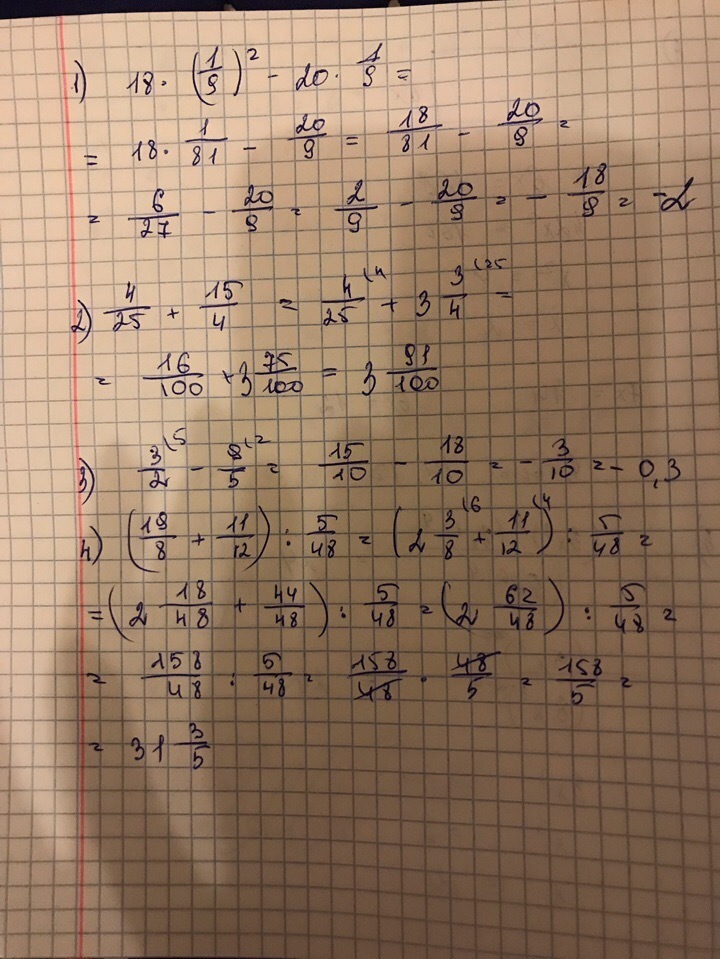 1) 18 · (1/9)² - 20 · 1/9 =
= 18 · 1/81 - 20/9 = 18/81 - 20/9 =
= 6/27 - 20/9 = 2/9 - 20/9 = - 18/9 = -2
2) 4/25 + 15/4 = 4/25 (4 + 3 3/4 (25 =
= 16/100 + 3 75/100 = 3 91/100
3) 3/2 (5 - 9/5 (2 = 15/10 - 18/10 = - 3/10 = - 0,3
4) (19/8 + 11/12) : 5/48 = (2 3/8 (6 + 11/12 (4) : 5/48 =
= (2 18/48 + 44/48) : 5/48 = (2 62/48) : 5/48 =
= 158/48 : 5/48 = 158/48 · 48/5 = 158/5 =
= 31 3/5